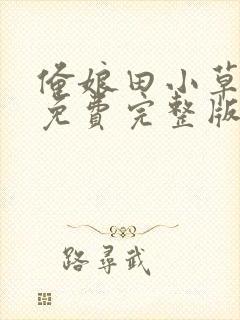 俺娘田小草
免費完整版
路尋武